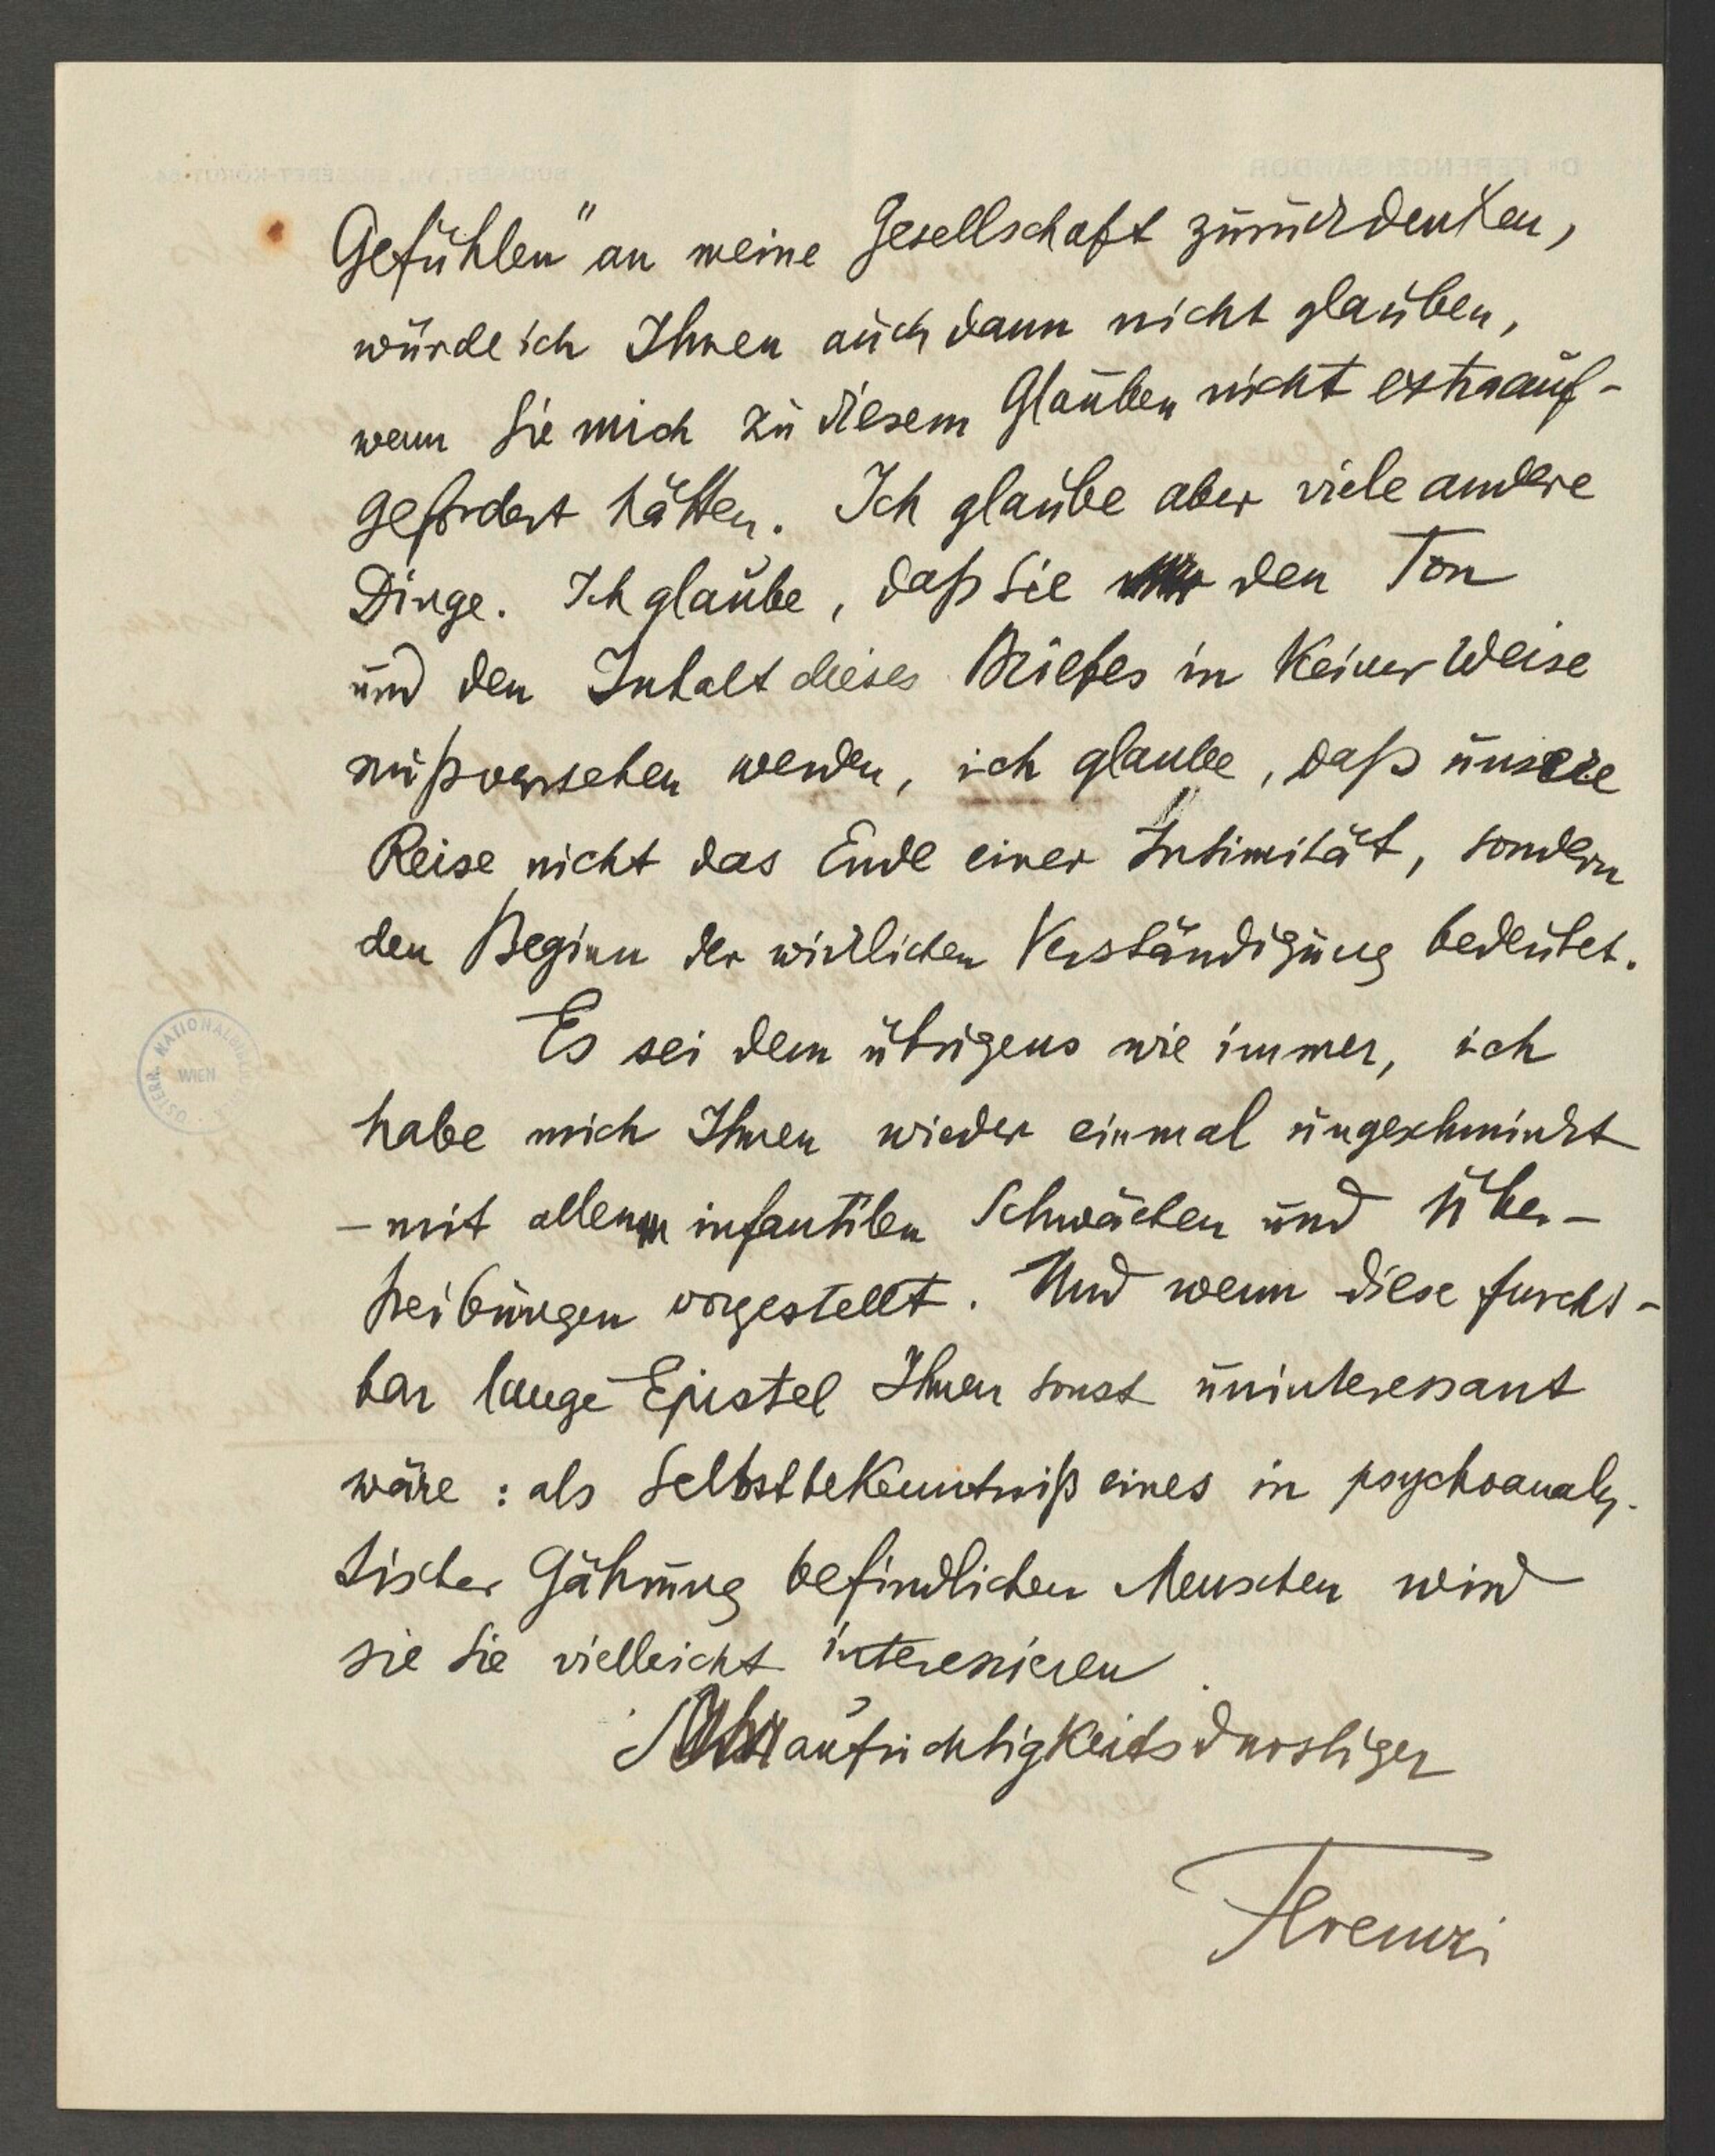 Gefühlen" an meine Gesellschaft zurückdenken,
würde ich Ihnen auch dann nicht glauben,
wenn Sie mich zu diesem Glauben nicht extra auf-
gefordert hätten. Ich glaube aber viele andere
Dinge. Ich glaube, daß Sie den Ton
und den Inhalt dieses Briefes in keiner Weise
mißverstehen werden, ich glaube, daß unsere
Reise nicht das Ende einer Intimität, sondern
den Beginn der wirklichen Verständigung bedeutet.
Es sei dem übrigens wie immer, ich
habe mich Ihnen wieder einmal ungeschminkt
– mit allen infantilen Schwächen und Über-
treibungen vorgestellt. Und wenn diese furcht-
bar lange Epistel Ihnen sonst uninteressant
wäre: als Selbstbekenntniß eines in psychoanaly-
tischer Gährung befindlichen Menschen wird
sie Sie vielleicht interessieren.
aufrichtigkeitsdurstiger
Ferenczi
ÖSTERR. NATIONALBIBLIOTHEK
WIEN